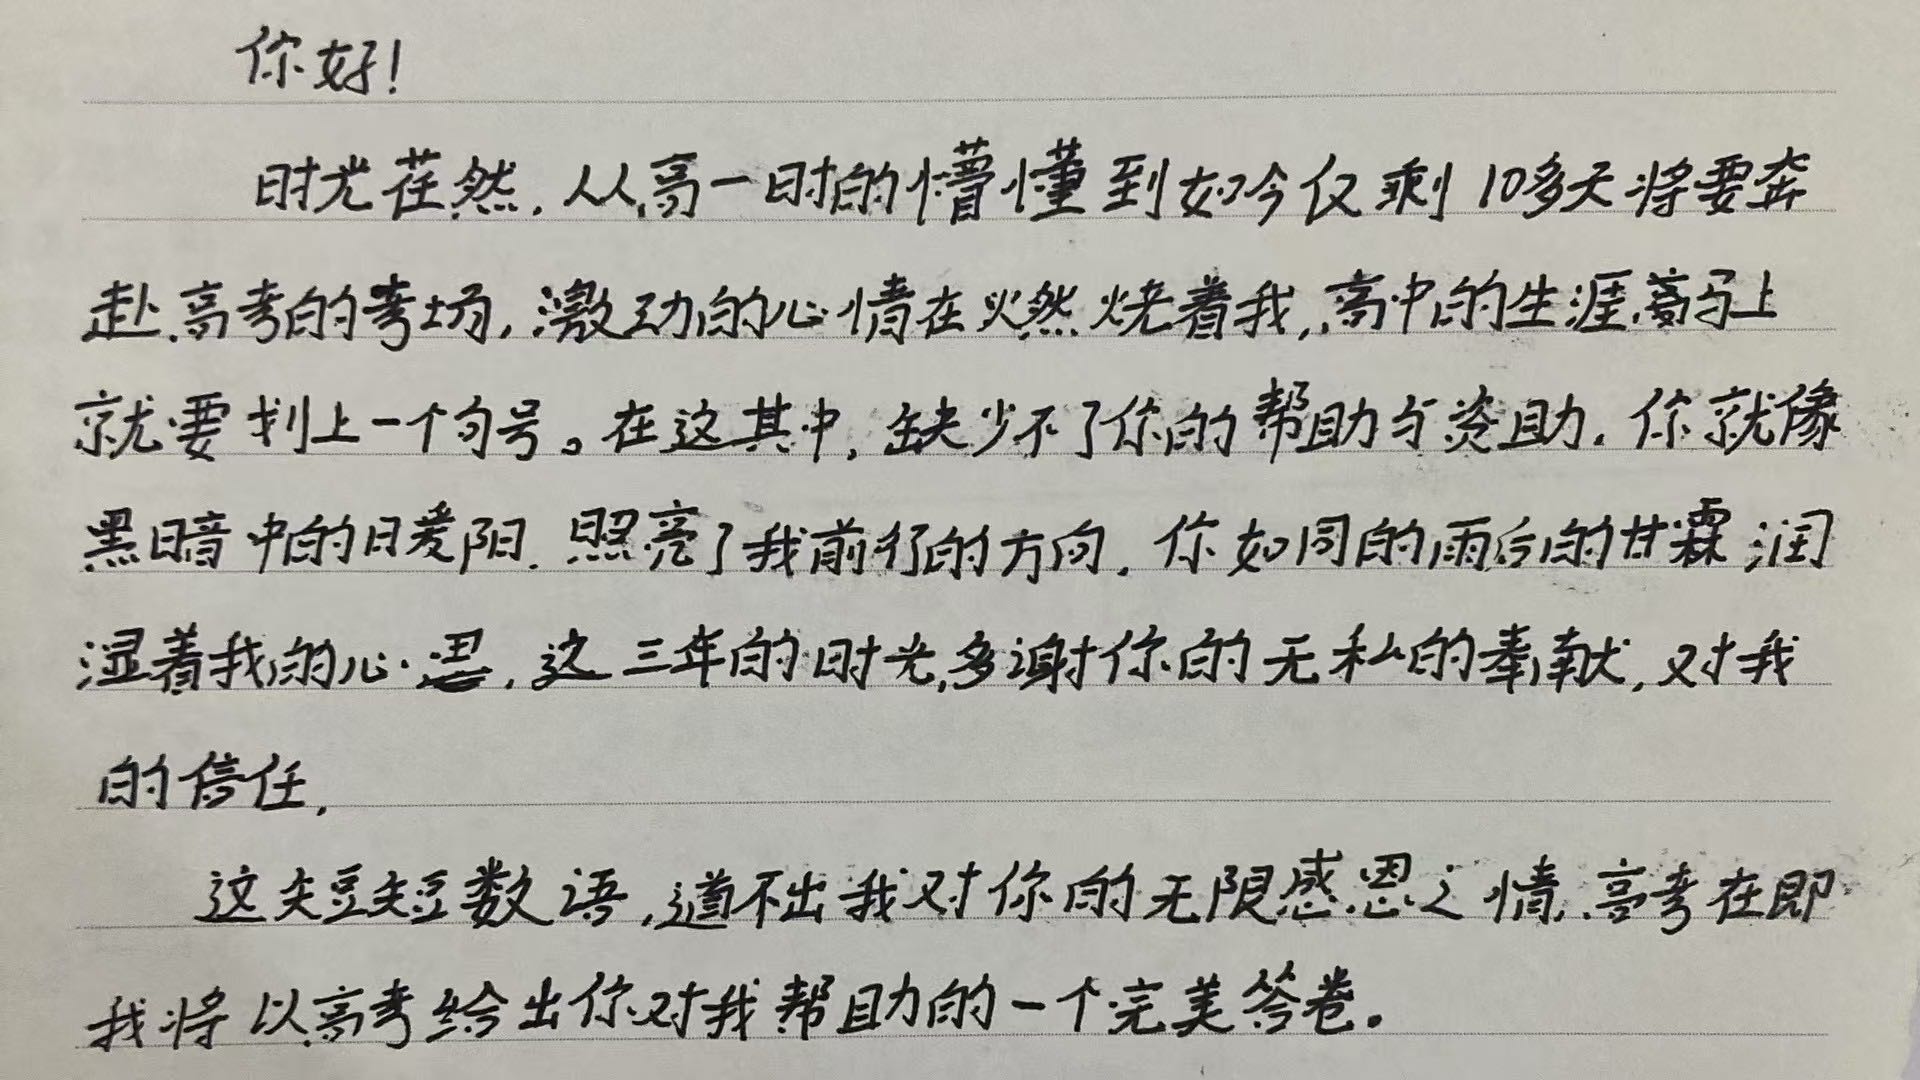 你好！
时光荏然，从高一时的懵懂到如今仅剩10多天将要奔
赴高考的考场，激动的心情在火然烧着我，高中的生涯马上
就要划上一个句号。在这其中，缺少不了你的帮助与资助。你就像
黑暗中的暖阳．照亮了我前行的方向，你如同的雨后的甘霖润
湿着我的心·，这三年的时光，多谢你的无私的奉献，对我
的信任，
这短短数语，道不出我对你的无限感恩之情，高考在即
我将以高考给出你对我帮助的一个完美答卷。